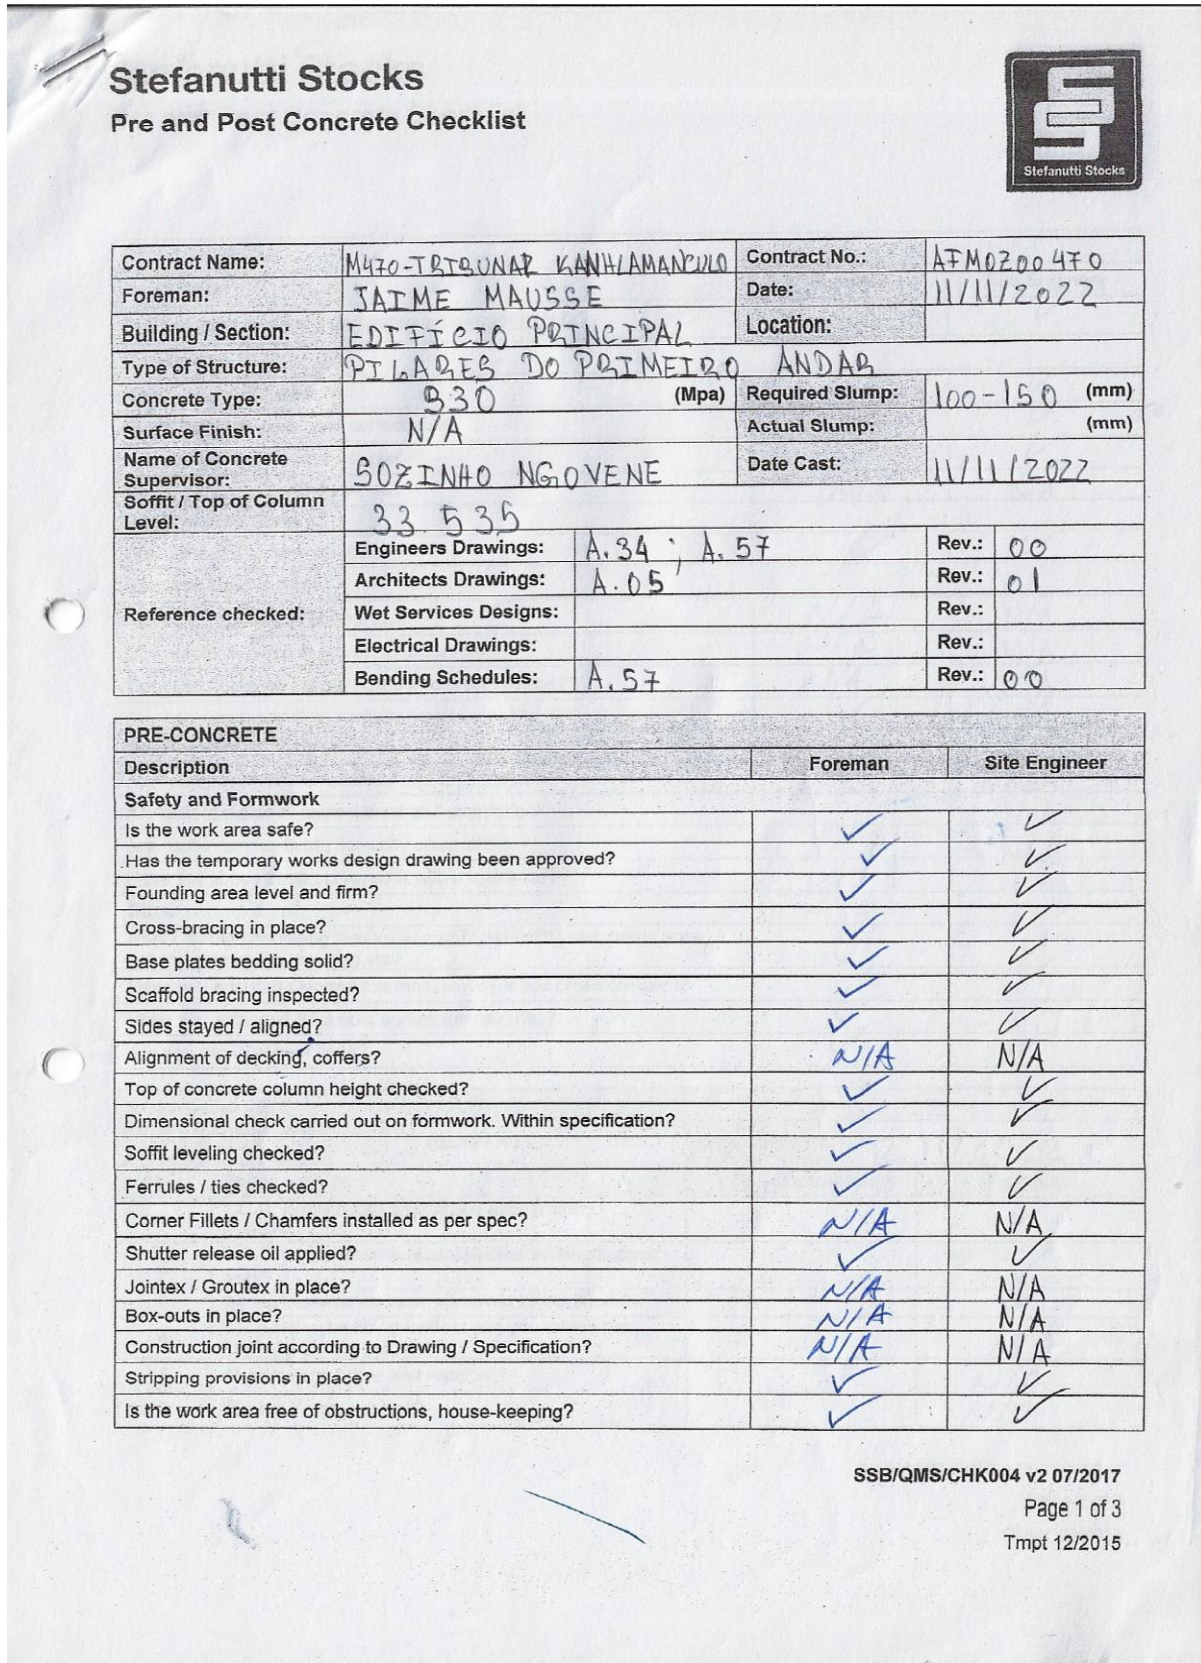 Stefanutti Stocks
Pre and Post Concrete Checklist
Stefanutti Stocks
Contract Name: M470-TRIBUNAR KANHLAMANCULO Contract No.: AFMOZ00470
Foreman: JAIME MAUSSE Date: 11/11/2022
Building / Section: EDIFÍCIO PRINCIPAL Location:
Type of Structure: PILARES DO PRIMEIRO ANDAR
Concrete Type: B30 (Mpa) Required Slump: 100-150 (mm)
Surface Finish: N/A Actual Slump: (mm)
Name of Concrete Supervisor: SOZINHO NGOVENE Date Cast: 11/11/2022
Soffit / Top of Column Level: 33.535
Reference checked:
Engineers Drawings: A.34 ; A.57 Rev.: 00
Architects Drawings: A.05 Rev.: 01
Wet Services Designs: Rev.:
Electrical Drawings: Rev.:
Bending Schedules: A.57 Rev.: 00
PRE-CONCRETE
Description Foreman Site Engineer
Safety and Formwork
Is the work area safe? ✓ ✓
Has the temporary works design drawing been approved? ✓ ✓
Founding area level and firm? ✓ ✓
Cross-bracing in place? ✓ ✓
Base plates bedding solid? ✓ ✓
Scaffold bracing inspected? ✓ ✓
Sides stayed / aligned? ✓ ✓
Alignment of decking, coffers? N/A N/A
Top of concrete column height checked? ✓ ✓
Dimensional check carried out on formwork. Within specification? ✓ ✓
Soffit leveling checked? ✓ ✓
Ferrules / ties checked? ✓ ✓
Corner Fillets / Chamfers installed as per spec? N/A N/A
Shutter release oil applied? ✓ ✓
Jointex / Groutex in place? N/A N/A
Box-outs in place? N/A N/A
Construction joint according to Drawing / Specification? N/A N/A
Stripping provisions in place? ✓ ✓
Is the work area free of obstructions, house-keeping? ✓ ✓
SSB/QMS/CHK004 v2 07/2017
Page 1 of 3
Tmpt 12/2015